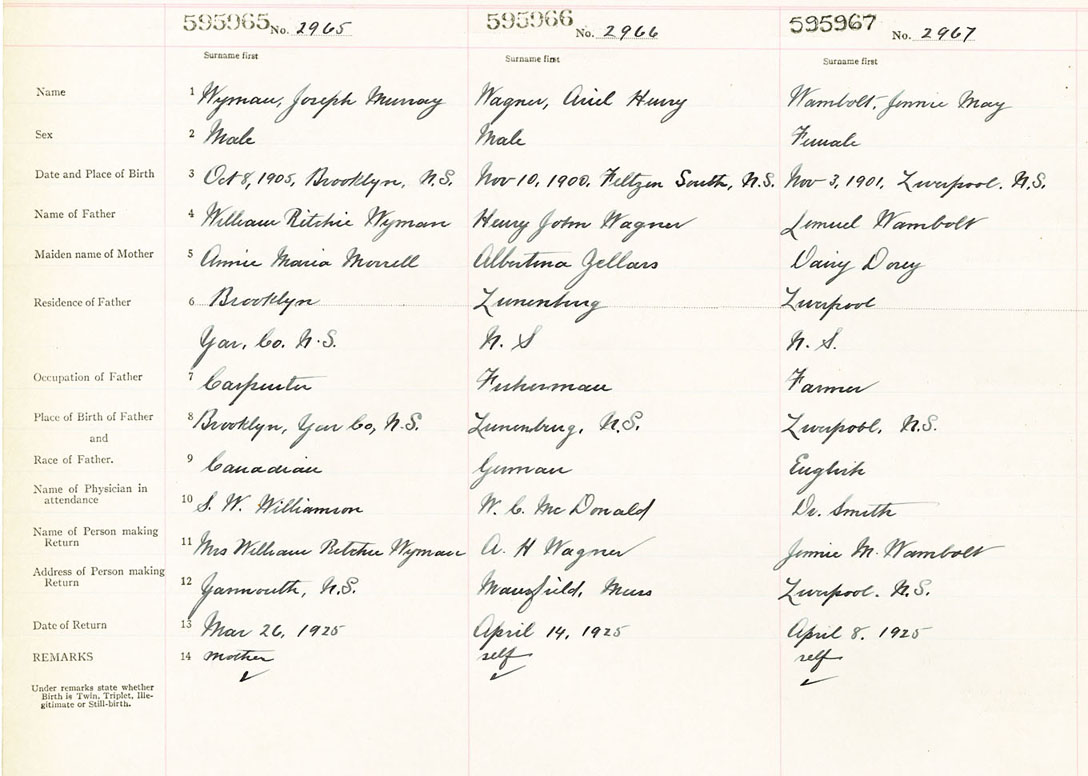 595965 No. 2965 595966 No. 2966 595967 No. 2967
Surname first Surname first Surname first
Name 1 Wyman, Joseph Murray Wagner, Ariel Henry Wambolt, Jennie May
Sex 2 Male Male Female
Date and Place of Birth 3 Oct 8, 1905, Brooklyn, N.S. Nov 10, 1900, Feltzen South, N.S. Nov 3, 1901, Liverpool. N.S.
Name of Father 4 William Ritchie Wyman Henry John Wagner Lemuel Wambolt
Maiden name of Mother 5 Annie Maria Morrell Albertina Zellars Daisy Dorey
Residence of Father 6 Brooklyn Lunenburg Liverpool
Yar. Co. N.S. N. S N. S.
Occupation of Father 7 Carpenter Fisherman Farmer
Place of Birth of Father 8 Brooklyn, Yar Co, N.S. Lunenburg, N.S. Liverpool, N.S.
and
Race of Father. 9 Canadian German English
Name of Physician in
attendance 10 S. W. Williamson W. C. McDonald Dr. Smith
Name of Person making
Return 11 Mrs William Ritchie Wyman A. H Wagner Jennie M. Wambolt
Address of Person making
Return 12 Yarmouth, N.S. Mansfield, Mass Liverpool. N.S.
Date of Return 13 Mar 26, 1925 April 14, 1925 April 8, 1925
REMARKS 14 mother self self
Under remarks state whether
Birth is Twin, Triplet, Ille-
gitimate or Still-birth.